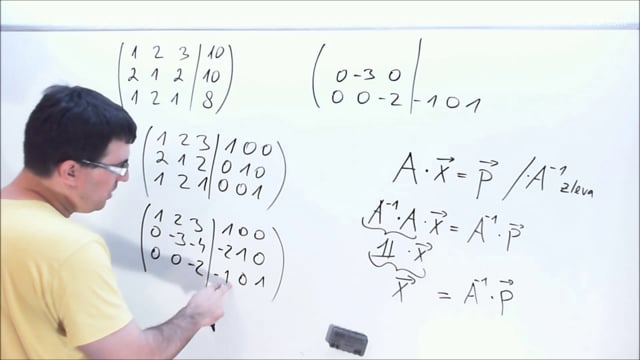 1 2 3 | 10
2 1 2 | 10
1 2 1 | 8
1 2 3 | 1 0 0
2 1 2 | 0 1 0
1 2 1 | 0 0 1
1 2 3 | 1 0 0
0 -3 -4 | -2 1 0
0 0 -2 | -1 0 1
0 -3 0
0 0 -2 | -1 0 1
A · x⃗ = p⃗ / · A⁻¹ zleva
A⁻¹ · A · x⃗ = A⁻¹ · p⃗
𝟙 · x⃗
x⃗ = A⁻¹ · p⃗